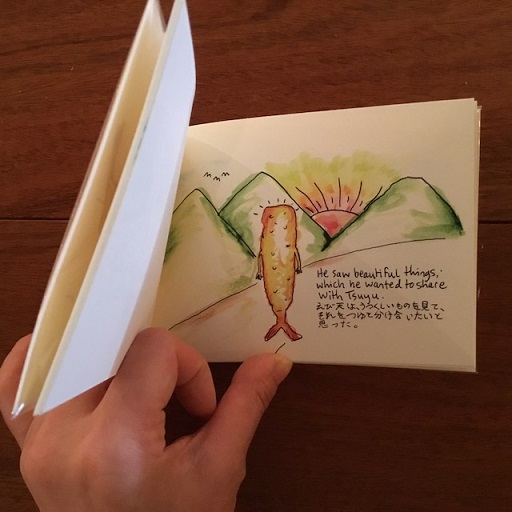 He saw beautiful things,
which he wanted to share
with Tsuyu.
えび天は、うつくしいものを見て、
それをつゆと分け合いたいと
思った。